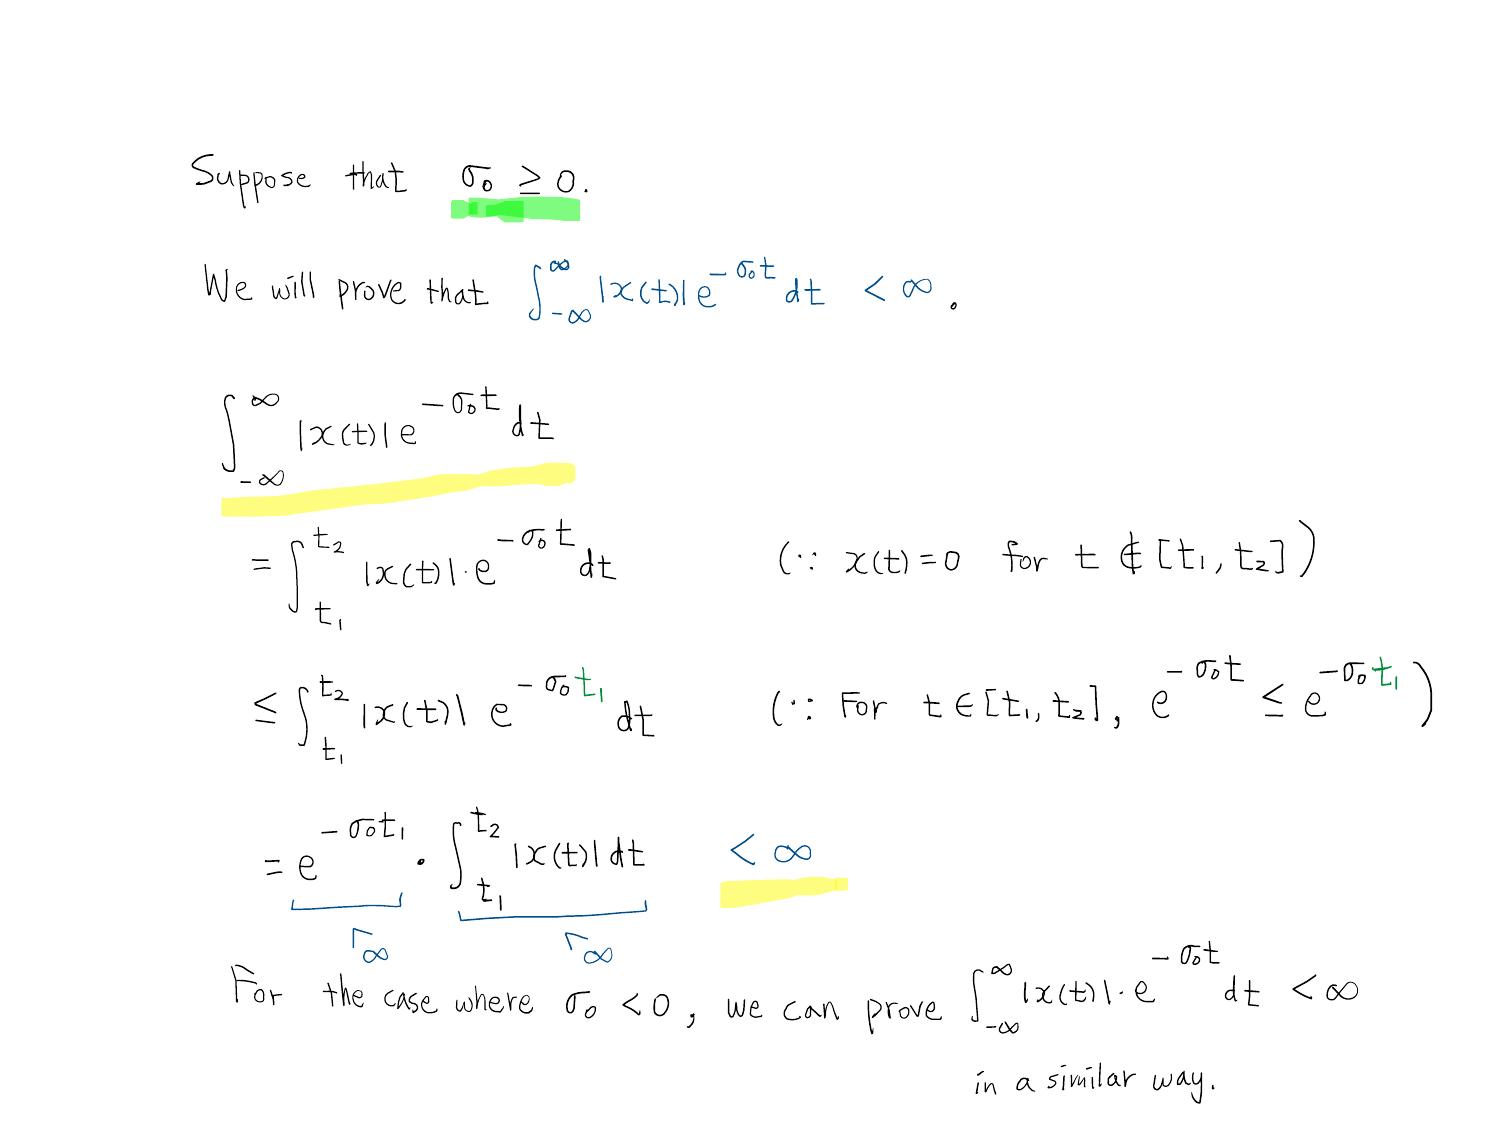 Suppose that σ₀ ≥ 0.
We will prove that ∫_{-∞}^{∞} |x(t)| e^{-σ₀t} dt < ∞.
∫_{-∞}^{∞} |x(t)| e^{-σ₀t} dt
= ∫_{t₁}^{t₂} |x(t)|·e^{-σ₀t} dt (∵ x(t)=0 for t ∉ [t₁, t₂])
≤ ∫_{t₁}^{t₂} |x(t)| e^{-σ₀t₁} dt (∵ For t ∈ [t₁, t₂], e^{-σ₀t} ≤ e^{-σ₀t₁})
= e^{-σ₀t₁} · ∫_{t₁}^{t₂} |x(t)| dt < ∞
< ∞ < ∞
For the case where σ₀ < 0, we can prove ∫_{-∞}^{∞} |x(t)|·e^{-σ₀t} dt < ∞
in a similar way.